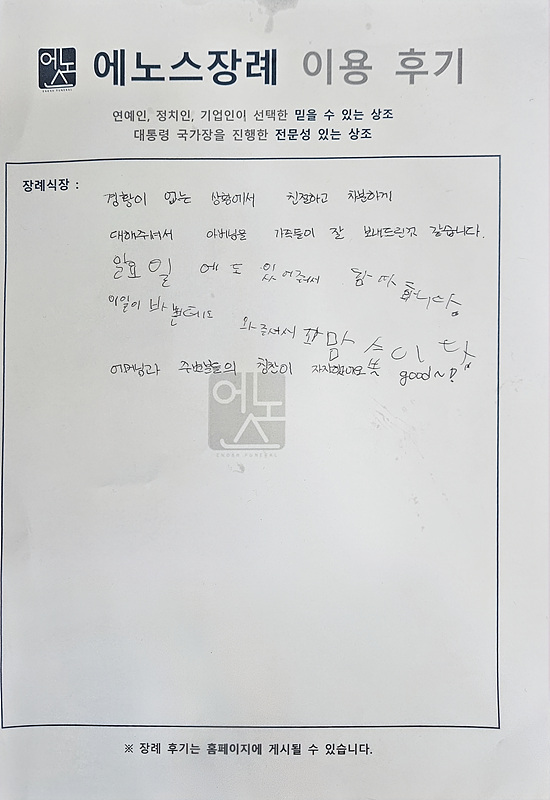 에노스
ENOSS FUNERAL
에노스장례 이용 후기
연예인, 정치인, 기업인이 선택한 믿을 수 있는 상조
대통령 국가장을 진행한 전문성 있는 상조
장례식장 :
경황이 없는 상황에서 친절하고 차분하게
대해주셔서 아버님을 가족들이 잘 보내드린것 같습니다.
일요일 에도 있어주셔서 감사합니다.
일이 바쁜데도 와주셔서
어머님과 주변분들의 칭찬이 자자했어요 good~!
에노스
※ 장례 후기는 홈페이지에 게시될 수 있습니다.